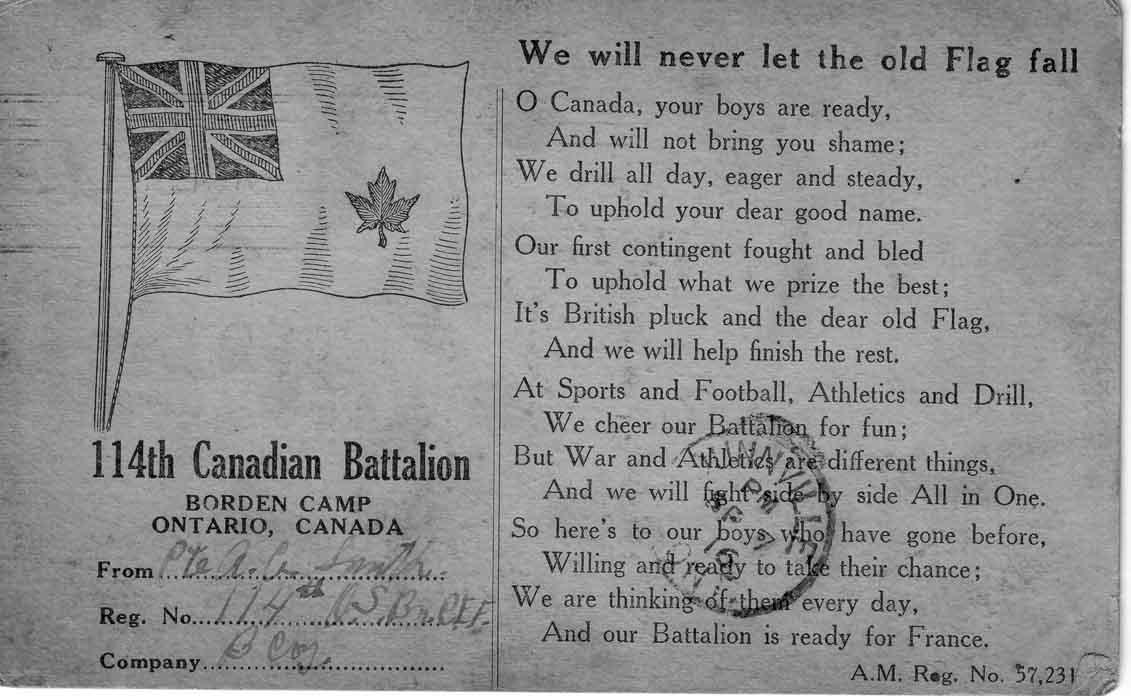 We will never let the old Flag fall
O Canada, your boys are ready,
And will not bring you shame;
We drill all day, eager and steady,
To uphold your dear good name.
Our first contingent fought and bled
To uphold what we prize the best;
It's British pluck and the dear old Flag,
And we will help finish the rest.
At Sports and Football, Athletics and Drill,
We cheer our Battalion for fun;
But War and Athletics are different things,
And we will fight side by side All in One.
So here's to our boys who have gone before,
Willing and ready to take their chance;
We are thinking of them every day,
And our Battalion is ready for France.
A.M. Reg. No. 57,231
114th Canadian Battalion
BORDEN CAMP
ONTARIO, CANADA
From Pte A. C. Smith
Reg. No. 114th O S Bn CEF
Company B Coy.
NNVILLE
PM
SE 7
16
ONT